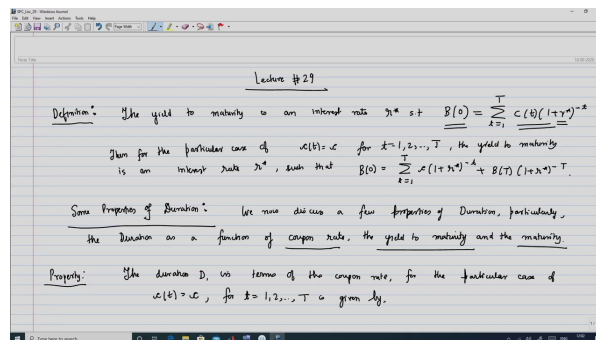 SPC_Lec_29 - Windows Journal
File Edit View Insert Actions Tools Help
Page Width
Note Title
Lecture #29
Definition: The yield to maturity is an interest rate r* s.t B(0) = ∑_{t=1}^{T} c(t)(1+r*)^{-t}
Then for the particular case of c(t)=c for t=1,2,..,T, the yield to maturity
is an interest rate r*, such that B(0) = ∑_{t=1}^{T} c(1+r*)^{-t} + B(T)(1+r*)^{-T}.
Some Properties of Duration: We now discuss a few properties of Duration, particularly,
the Duration as a function of coupon rate, the yield to maturity and the maturity.
Property: The duration D, in terms of the coupon rate, for the particular case of
c(t) = c, for t = 1,2,..,T is given by,
Type here to search